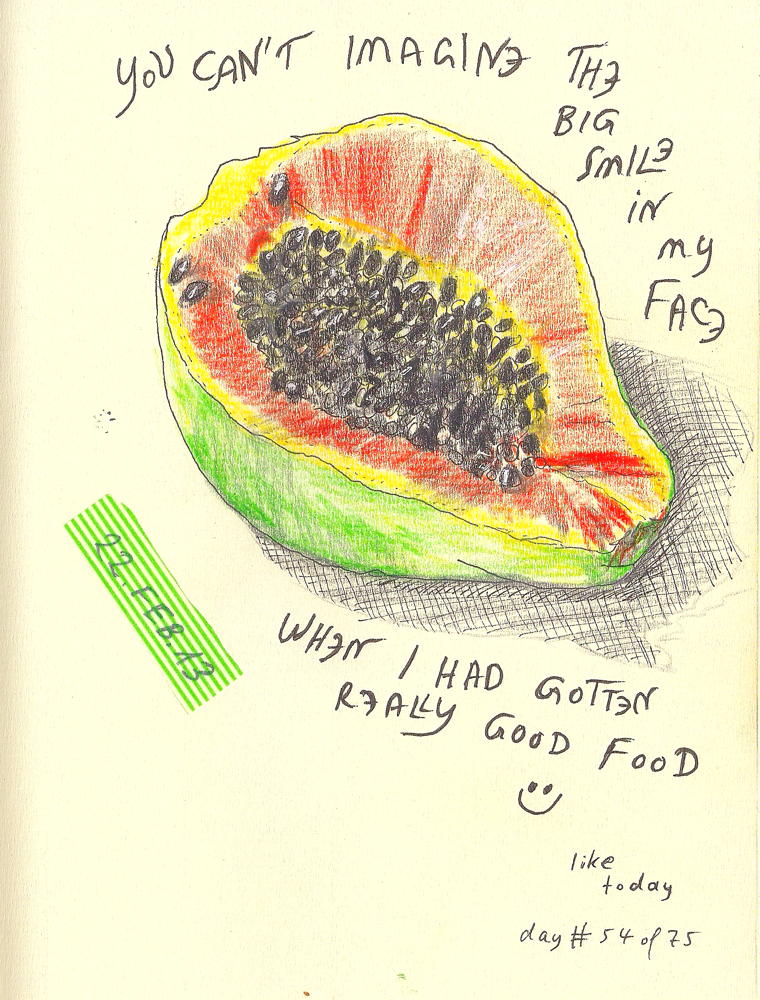 YOU CAN'T IMAGINE THE
BIG
SMILE
IN
MY
FACE
22. FEB. 13
WHEN I HAD GOTTEN
REALLY GOOD FOOD
like
today
day # 54 of 75